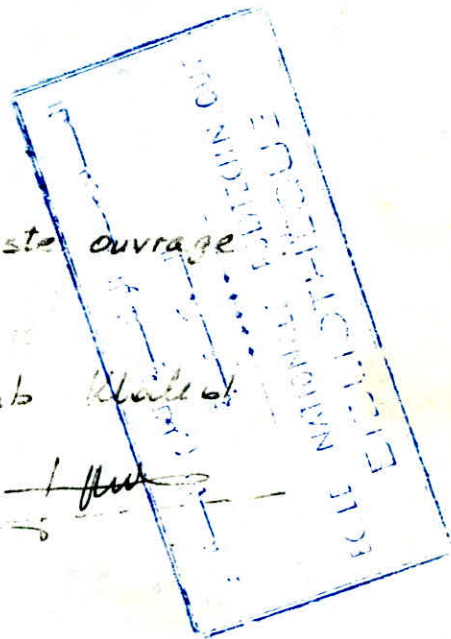 ste ouvrage
b Khaled
ECOLE NATIONALE POLYTECHNIQUE
BIBLIOTHEQUE